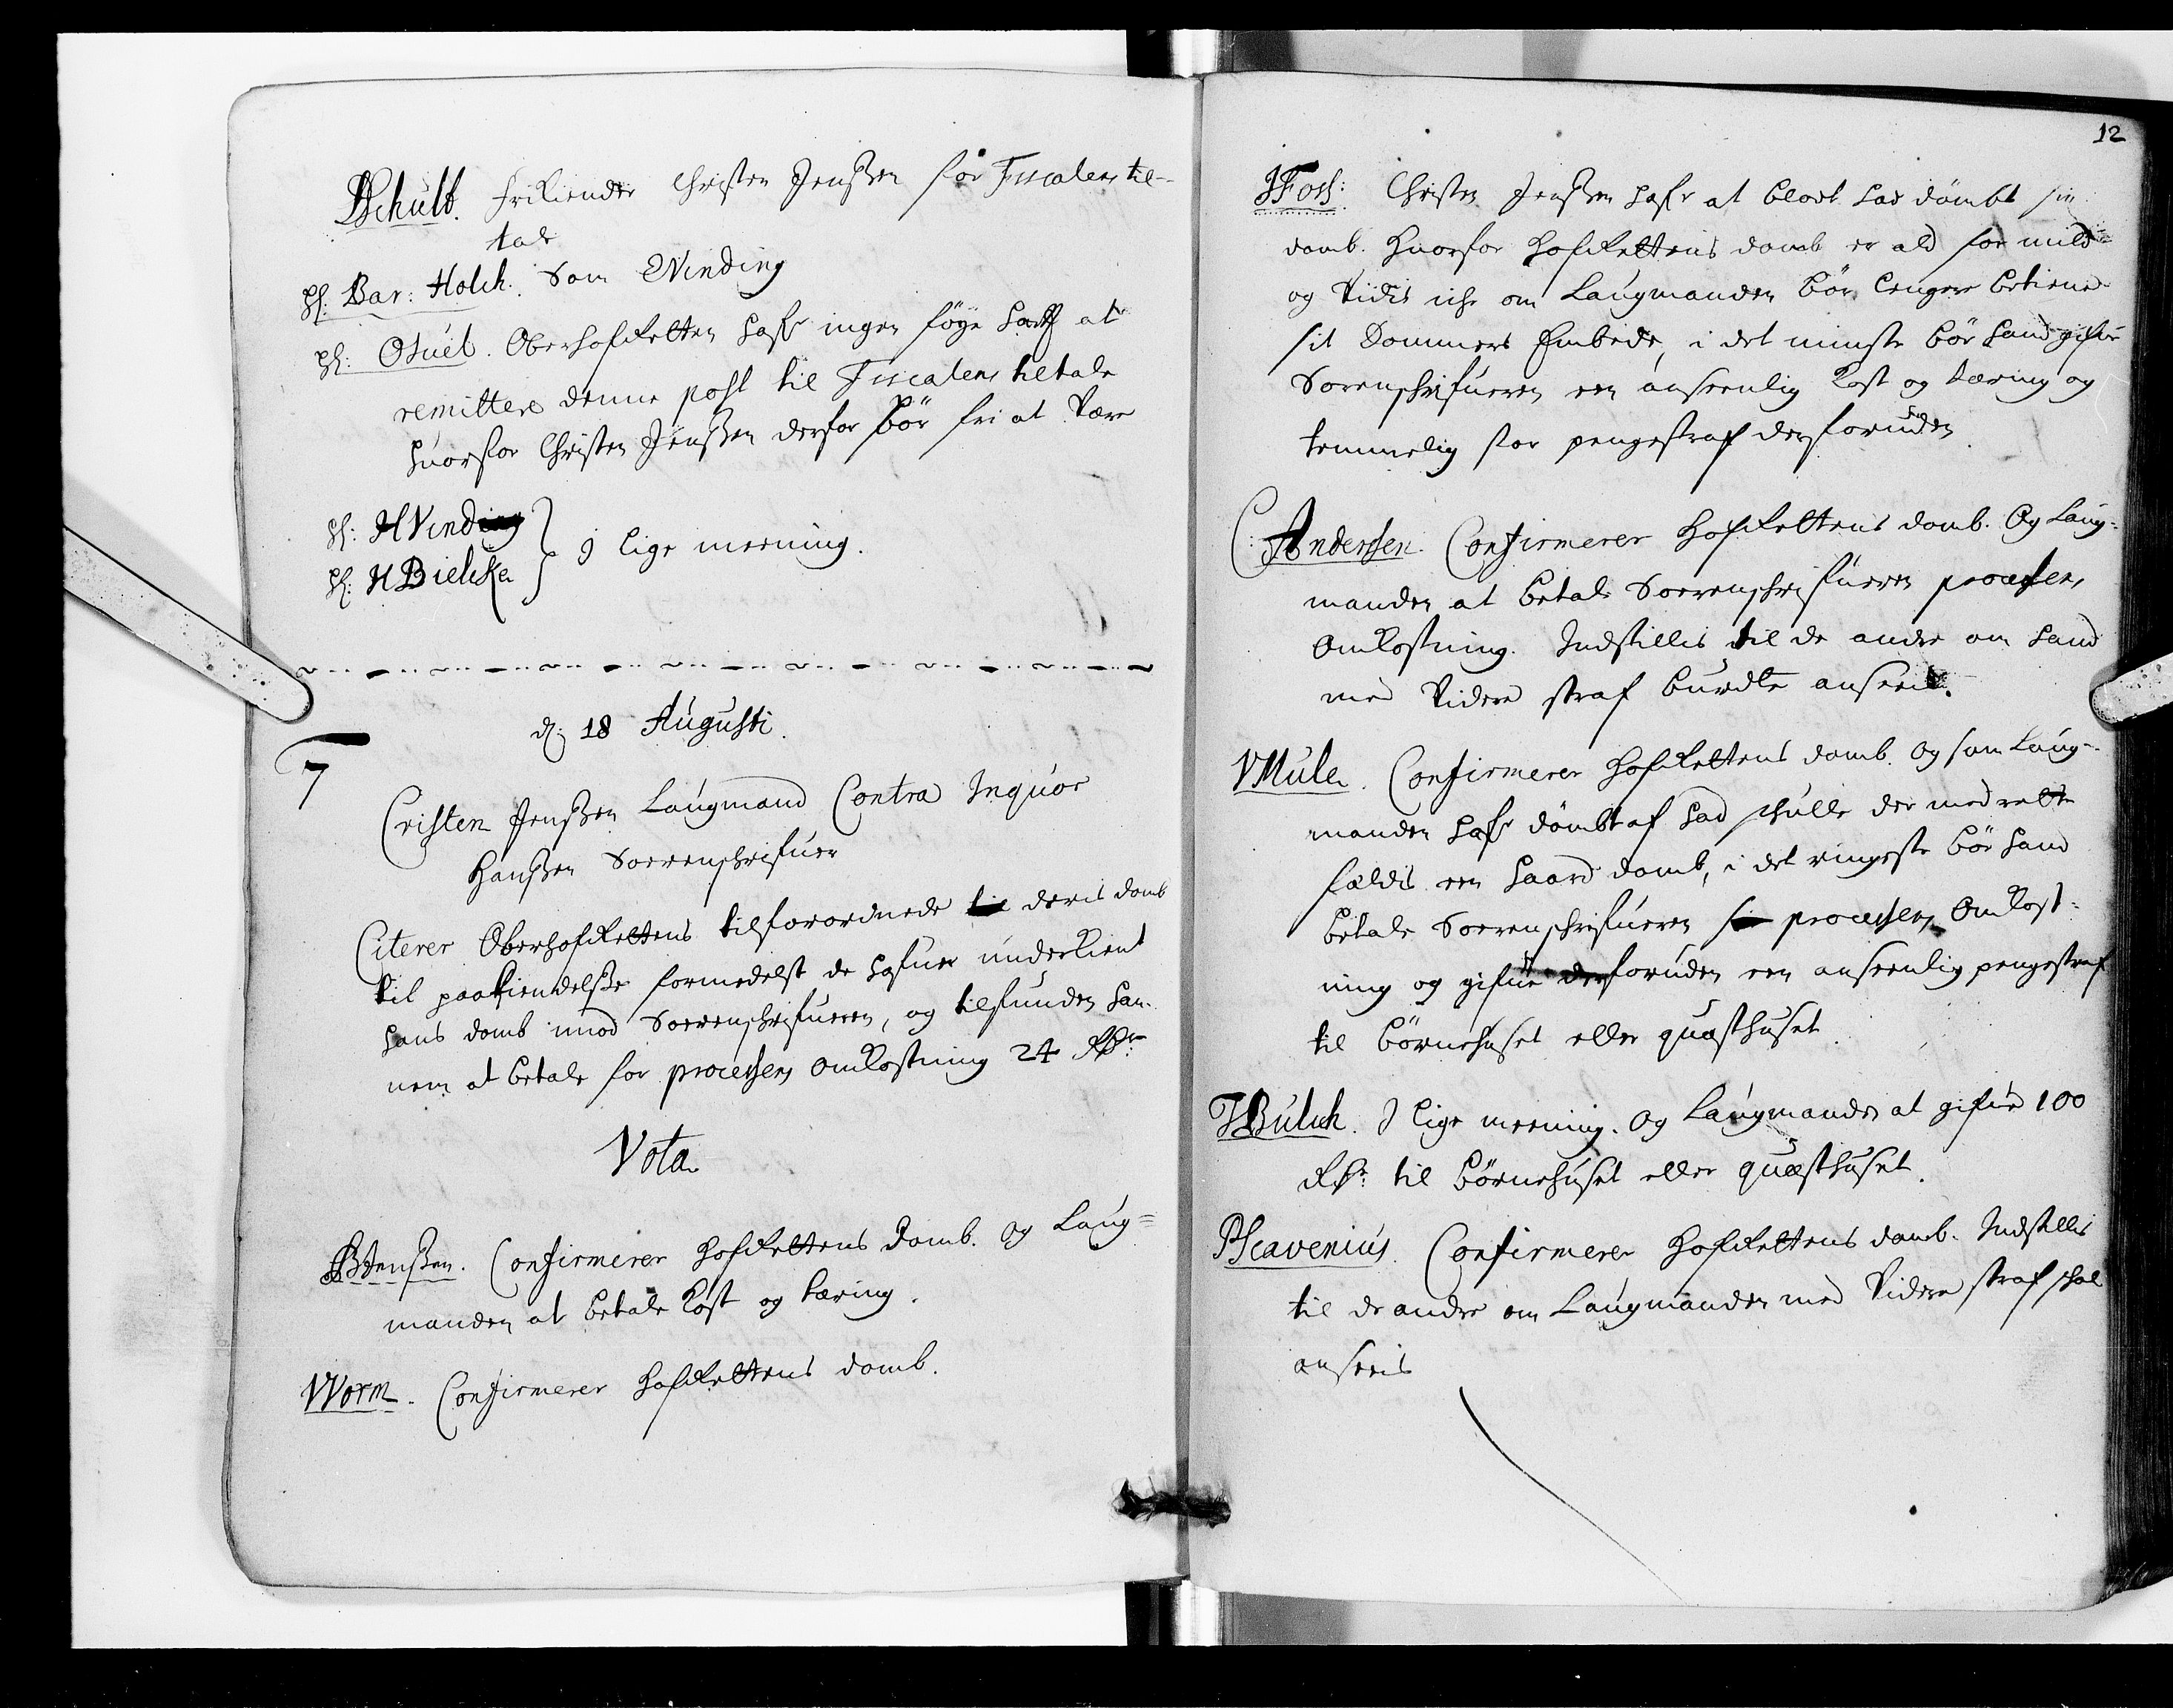 PSchult. frikiender Christen Jenssen for Fiscalens til-
tale
H: Bar: Holck. Som Vinding
H: Otuel. Oberhofretten hafr ingen föye hafft at
remittere denne post til Fiscalens tiltale
huorfor Christen Jenssen derfor bör fri at være
H: HVinding
H: HBielcke } I lige meening.
d: 18 Augusti.
7
Cristen Jenssen Laugmand Contra Inguor
Hanssen Sorenschrifuer
Citerer Oberhofrettens tilforordnede deris domb
til paakiendelsse formedelst de hafuer underkient
hans domb imod Sorenschrifueren, og tilfunden han-
nem at betale for processens omkostning 24 Rdr
Vota
Jenssen. Confirmerer Hofrettens Domb. og Laug-
manden at betale kost og tæring.
WWorm. Confirmerer Hofrettens domb.
12
JFoss: Christen Jenssen hafr at blodt lad dömbt sin
domb. Huorfor Hofrettens domb er ald for mild
og Vidis iche om Laugmanden bör lenger betiene
sit Dommers Embede, i det minste bör hand gifue
Sorenschrifueren een anseenlig kost og tæring og
temmelig stor pengestraf desforuden
C: Anderssen. Confirmerer Hofrettens domb. Og Laug-
manden at betale Sorenschrifueren processens
Omkostning. Indstillis til de andre om hand
med Videre straf burdte ansees.
VMule. Confirmerer Hofrettens domb. Og som Laug-
manden hafr dömbt af had schulle der med rette
fældis een haard domb, i det ringeste bör hand
betale Sorenschrifueren processens Omkost-
ning og gifue desforuden een anseenlig pengestraf
til Börnehuset eller quæsthuset.
JBulich. I lige meening. Og Laugmanden at gifue 100
Rdr: til Börnehuset eller quæsthuset.
PScavenius. Confirmerer Hofrettens domb. Indstillis
til de andre om Laugmanden med Videre straf schal
anseeis